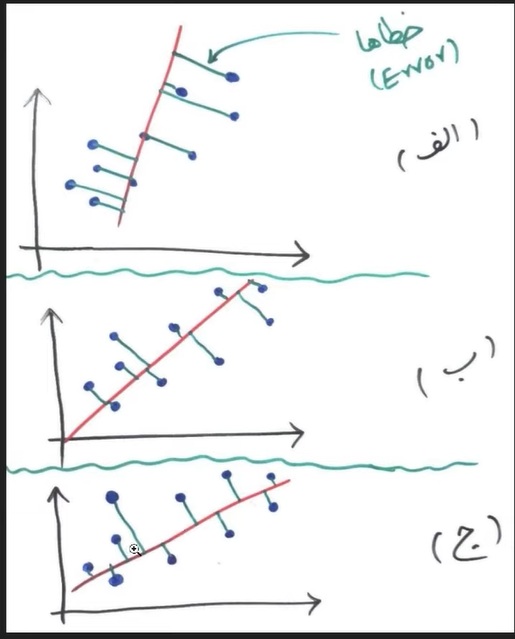 خطاها
(Error)
الف)
ب)
ج)